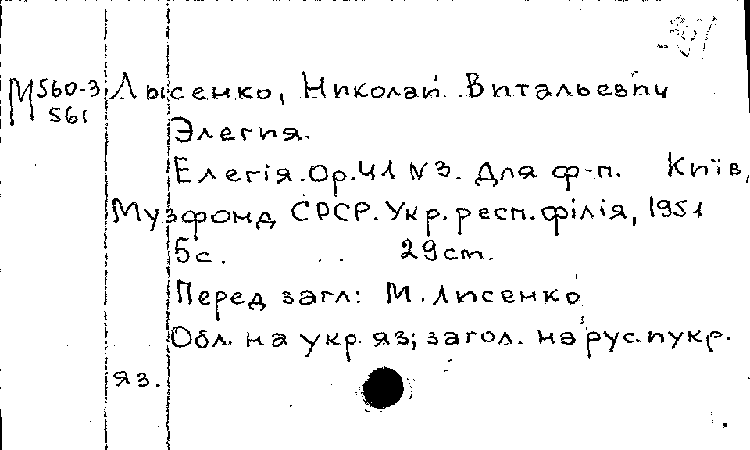 М 560-3 Лысенко, Николай Витальевич
561
Элегия.
Елегія. Ор. 41 N 3. Для ф-п. Київ,
Музфонд СРСР. Укр. респ. філія, 1951
5с. 29 cm.
Перед загл: М. Лисенко
Обл. на укр. яз; загол. на рус. и укр.
яз.